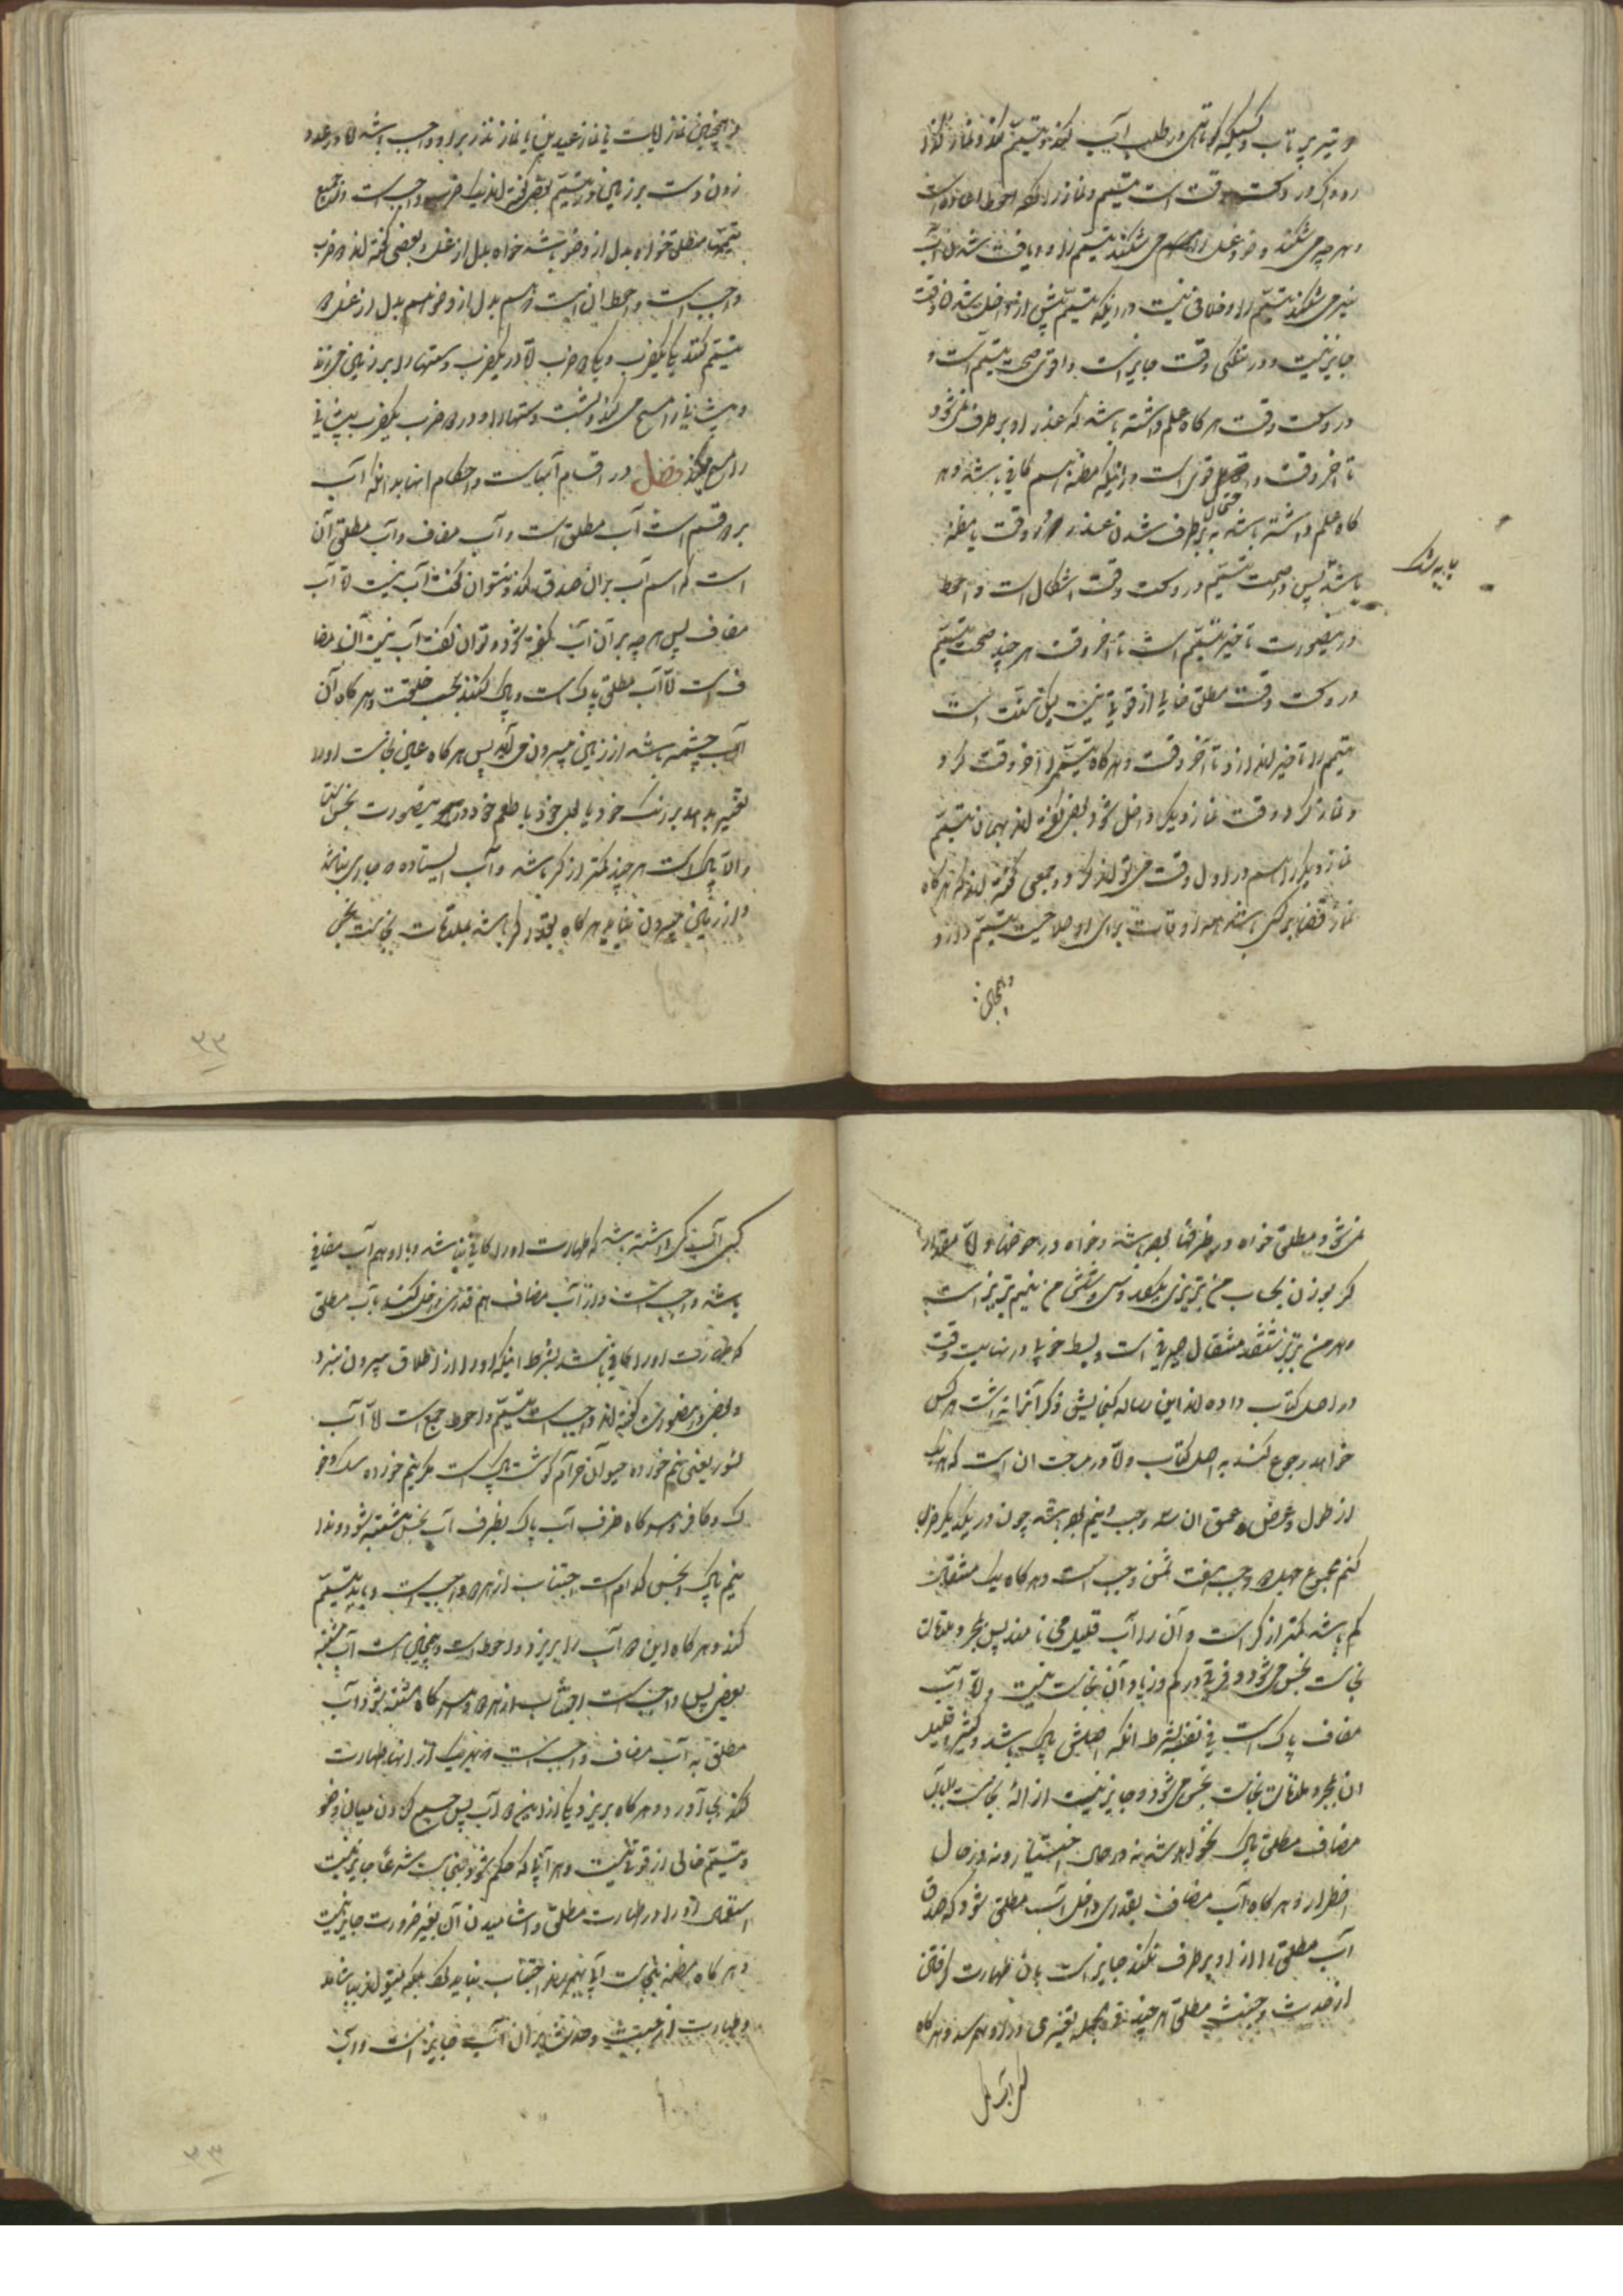 دو تیر پرتاب و کسیکه کوتاهی در طلب آب کند و تیمم کند و نماز گذارد
و هر چه می شکند وضو و غسل را هم می شکند تیمم را و یافت شدن آب
نیز می شکند تیمم را و خلافی نیست در اینکه تیمم پیش از داخل شدن وقت
جایز نیست و در تنگی وقت جایز است و اقوی صحت تیمم است
در وسعت وقت هر گاه علم داشته باشد که عذر او بر طرف نمی شود
تا آخر وقت و قوی است در اینکه مظنه هم کافی باشد و هر
گاه علم داشته باشد به بر طرف شدن عذر در وقت یا مظنه
باشد پس در صحت تیمم در وسعت وقت اشکال است و احوط
در اینصورت تاخیر تیمم است تا آخر وقت هر چند صحت تیمم
در وسعت وقت مطلق خالی از قوة نیست
تیمم را تاخیر اندازد تا آخر وقت و هر گاه تیمم را آخر وقت کرد
و نماز کرد و وقت نماز دیگر داخل شود بعضی گفته اند بهمان تیمم
نماز دیگر را هم در اول وقت می تواند کرد و جمعی گفته اند که هر گاه
نماز قضا بر کسی باشد همه اوقات برای او صلاحیت تیمم دارد
و همچنین
و همچنین نماز آیات یا نماز عیدین یا نماز نذر بر او واجب باشد اما در عدد
زدن دست بر زمین در تیمم بعضی گفته اند یک ضرب واجب است در جمیع
تیممها مطلق خواه بدل از وضو باشد خواه بدل از غسل و بعضی گفته اند دو ضرب
واجب است و احوط آن است که هم بدل از وضو هم بدل از غسل دو
تیمم کند یکی بیکضرب و یکی دو ضرب اما در یکضرب دستها را بر زمین می زند
و پیشانی را مسح می کند و پشت دستها را و در دو ضرب یکضرب پیشانی
را مسح میکند فصل در اقسام آبهاست و احکام انها بدانکه آب
بر دو قسم است آب مطلق است و آب مضاف و آب مطلق آن
است که اسم آب بر ان صدق کند و نتوان گفت آب نیست اما آب
مضاف پس هر چه بر آن آب گفته شود و توان گفت آب نیست آن مضا
ف است اما آب مطلق پاک است و پاک کننده بحسب خلقت و هر گاه آن
آب چشمه باشد از زمین بیرون می آید پس هر گاه عین نجاست او را
تغییر بدهد بر رنگ خود یا بوی خود یا طعم خود در اینصورت نجس است
والا پاک است هر چند کمتر از کر باشد و آب ایستاده که جاری نباشد
و از زمین بیرون نیاید هر گاه بقدر کر باشد بملاقات نجاست نجس
نمی شود مطلق خواه در ظرفها بوده باشد و خواه در حوضها و اما مقدار
کر بوزن بحساب من تبریزی یکصد و سی و شش من نیم تبریز است
و هر من تبریز ششصد مثقال صیرفی است و بسط خوبی در نهایت دقت
در اصل کتاب داده اند این رساله گنجایش ذکر آنرا نداشت هر کس
خواهد رجوع کند به اصل کتاب و اما در مساحت ان است که هر یک
از طول و عرض و عمق ان سه وجب و نیم بوده باشد چون در یکدیگر ضرب
کنم مجموع چهل دو وجب هفت ثمن وجب است و هر گاه یک مثقال
کم باشد کمتر از کر است و آن را آب قلیل می نامند پس بمجرد ملاقات
نجاست نجس می شود و فرقی در کم و زیاد آن نجاست نیست و اما آب
مضاف پاک است فی نفسه بشرط انکه اصلش پاک باشد و کثیر و قلیل
ان بمجرد ملاقات نجاست نجس می شود و جایز نیست ازاله نجاست بآب
مضاف مطلق پاک نخواهد شد نه در حال اختیار و نه در حال
اضطرار و هر گاه آب مضاف بقدری داخل آب مطلق شود که صدق
آب مطلق را از او بر طرف نکند جایز است بان طهارت گرفتن
از حدث و خبث مطلق هر چند فی الجمله تغییری در او بهم رسد و هر گاه
کسی آب
کسی آب کمی داشته باشد که طهارت او را کافی نباشد و با او هم آب مضافی
باشد واجب است از آب مضاف هم قدری داخل کند بآب مطلق
که طهارت او را کافی باشد بشرط اینکه او را از اطلاق بیرون نبرد
و بعضی در اینصورت گفته اند واجب است تیمم و احوط جمع است اما آب
سئور یعنی نیم خورده حیوان حرام گوشت پاک است مگر نیم خورده سگ و خو
ک و کافر و هر گاه ظرف آب پاک بظرف آب نجس مشتبه شود و ندا
نیم پاک و نجس کدام است اجتناب از هر دو واجب است و باید تیمم
کند و هر گاه این دو آب را بریزد احوط است و همچنین است آب مشتبه
بغصبی پس واجب است اجتناب از هر دو و هر گاه مشتبه شود آب
مطلق به آب مضاف واجب است که بهر یک از انها طهارت
کند بجا آورد و هر گاه بریزد یکی از این دو آب پس جمع کردن میان وضو
و تیمم خالی از قوة نیست و هر آبی که حکم شود بنجاست شرعا جایز نیست
استعمال او را در طهارت مطلق و اشامیدن آن بغیر ضرورت جایز نیست
و هر گاه مظنه بنجاست آبی بهم رساند اجتناب نباید کرد بلکه میتواند بیاشامد
و طهارت از خبث و حدث از ان آب جایز است و آب
۳۲
۳۳